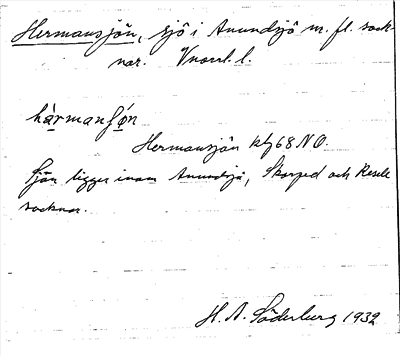 Hermansjön, sjö i Anundsjö m. fl. sock-
nar. Vnorrl. l.
hàrmanʃø̀n
Hermansjön kbl 68 NO.
Sjön ligger inom Anundsjö, Skorped och Resele
socknar.
H. A. Söderberg 1932